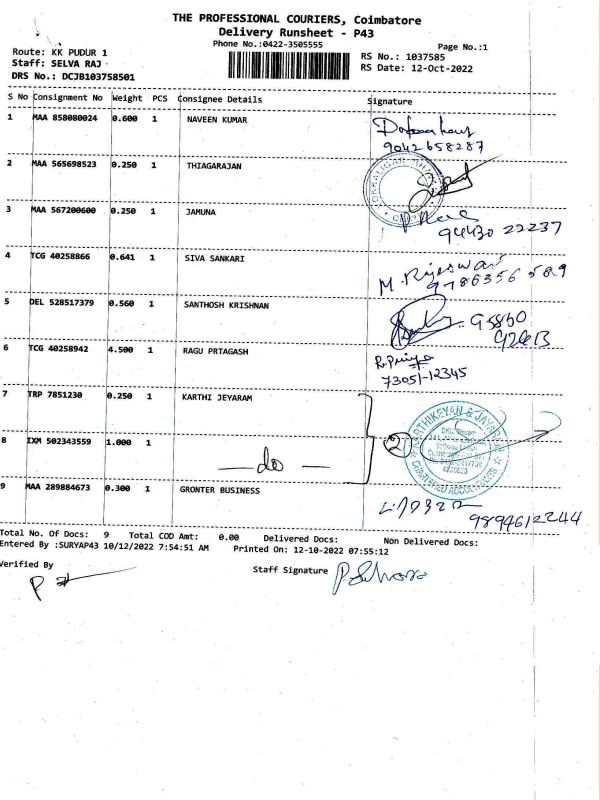 THE PROFESSIONAL COURIERS, Coimbatore
Delivery Runsheet - P43
Phone No.:0422-3505555
Page No.:1
Route: KK PUDUR 1
Staff: SELVA RAJ
DRS No.: DCJB103758501
RS No.: 1037585
RS Date: 12-Oct-2022
S No Consignment No Weight PCS Consignee Details Signature
1 MAA 858080024 0.600 1 NAVEEN KUMAR
9042658287
2 MAA 565698523 0.250 1 THIAGARAJAN
3 MAA 567200600 0.250 1 JAMUNA
94430 22237
4 TCG 40258866 0.641 1 SIVA SANKARI M. Rajeswari
9786356589
5 DEL 528517379 0.560 1 SANTHOSH KRISHNAN
6 TCG 40258942 4.500 1 RAGU PRTAGASH R. Priya
73051-12345
7 TRP 7851230 0.250 1 KARTHI JEYARAM
KARTHIKEYAN & JAYARAM
CHARTERED ACCOUNTANTS
2
8 IXM 502343559 1.000 1
— do —
9 MAA 289884673 0.300 1 GRONTER BUSINESS
9894612244
Total No. Of Docs: 9 Total COD Amt: 0.00 Delivered Docs: Non Delivered Docs:
Entered By :SURYAP43 10/12/2022 7:54:51 AM Printed On: 12-10-2022 07:55:12
Verified By
Staff Signature